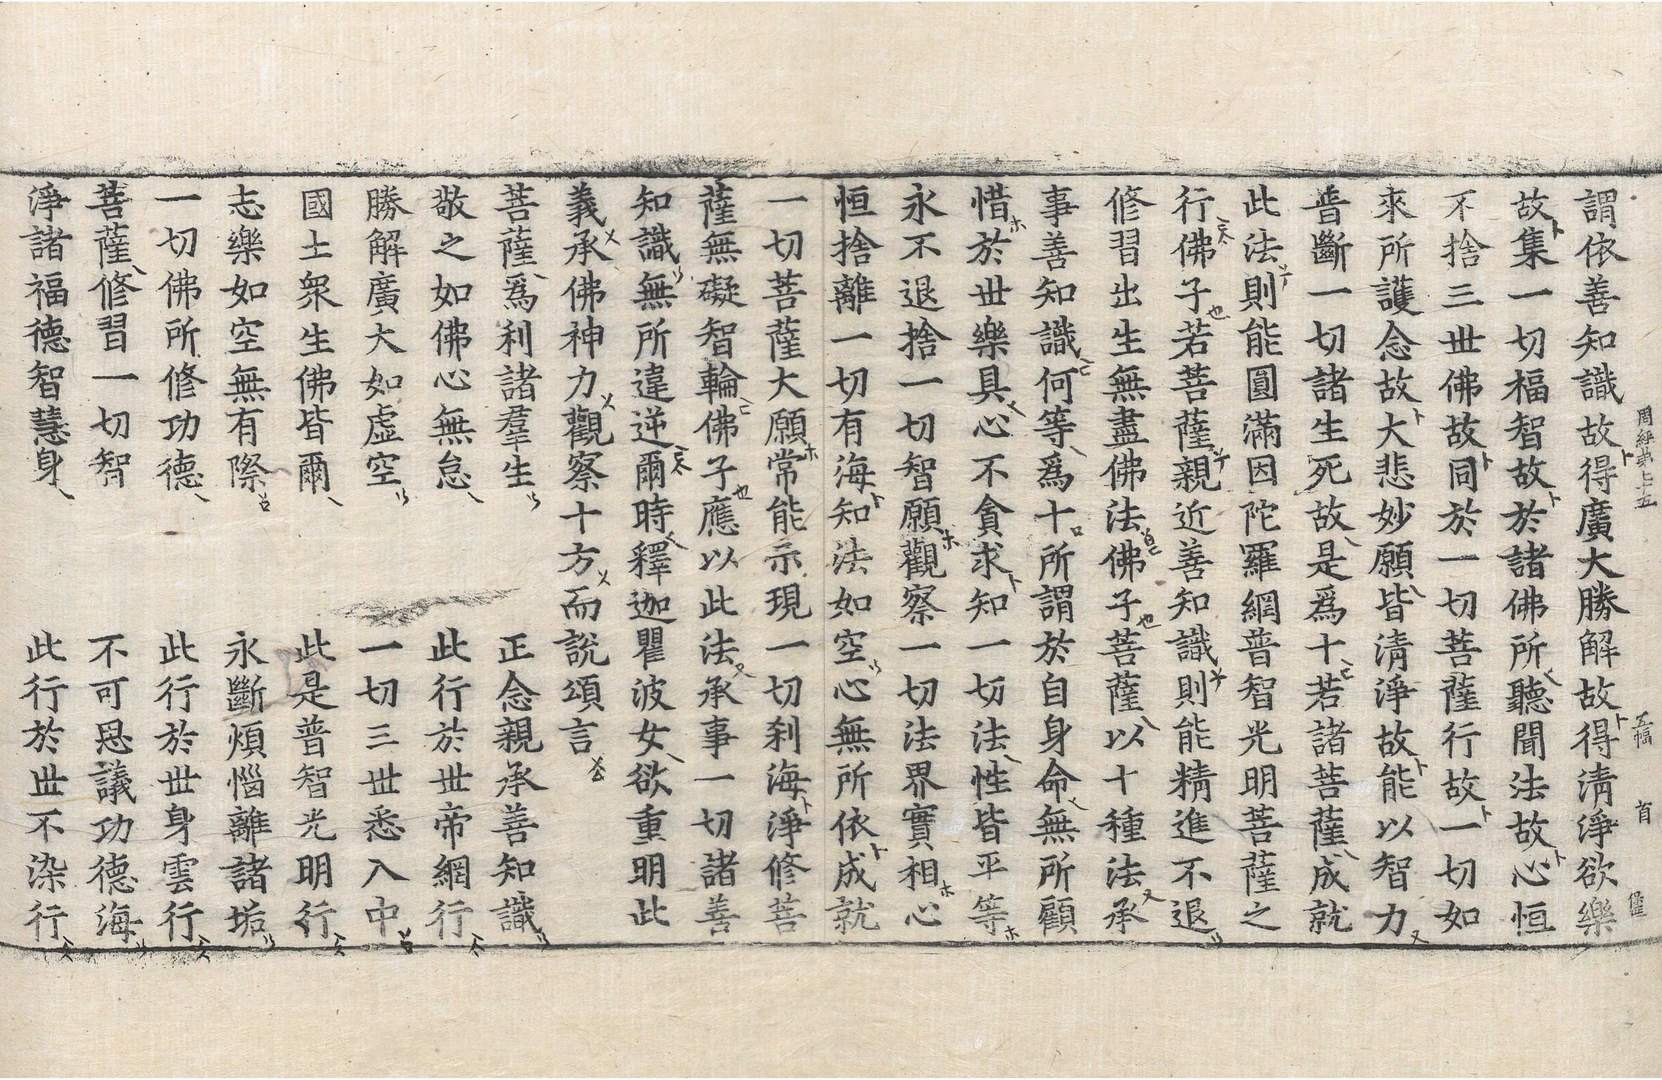 周經第七十五 五幅 首
謂依善知識故得廣大勝解故得淸淨欲樂
故集一切福智故於諸佛所聽聞法故心恒
不捨三世佛故同於一切菩薩行故一切如
來所護念故大悲妙願皆淸淨故能以智力
普斷一切諸生死故是爲十若諸菩薩成就
此法則能圓滿因陀羅網普智光明菩薩之
行佛子若菩薩親近善知識則能精進不退
修習出生無盡佛法佛子菩薩以十種法承
事善知識何等爲十所謂於自身命無所顧
惜於世樂具心不貪求知一切法性皆平等
永不退捨一切智願觀察一切法界實相心
恒捨離一切有海知法如空心無所依成就
一切菩薩大願常能示現一切刹海淨修菩
薩無礙智輪佛子應以此法承事一切諸善
知識無所違逆爾時釋迦瞿波女欲重明此
義承佛神力觀察十方而說頌言
菩薩爲利諸羣生 正念親承善知識
敬之如佛心無怠 此行於世帝網行
勝解廣大如虛空 一切三世悉入中
國土衆生佛皆爾 此是普智光明行
志樂如空無有際 永斷煩惱離諸垢
一切佛所修功德 此行於世身雲行
菩薩修習一切智 不可思議功德海
淨諸福德智慧身 此行於世不染行